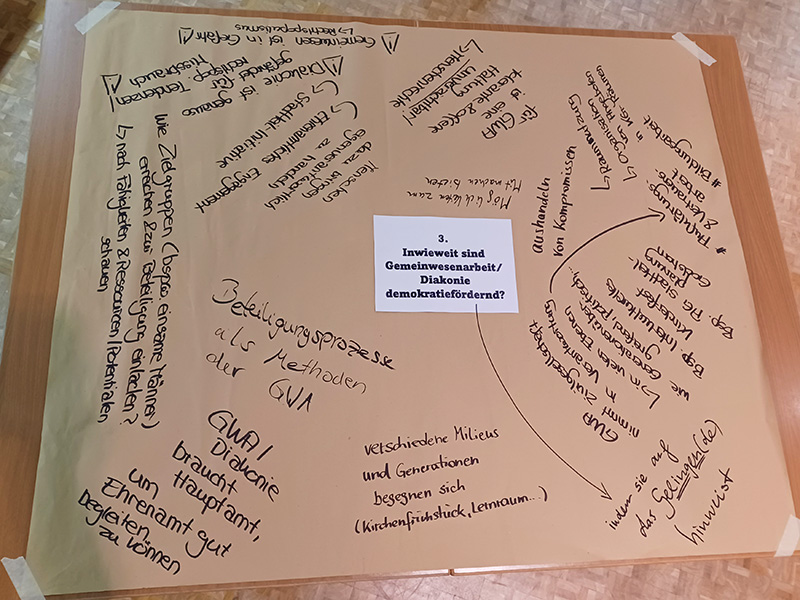 3.
Inwieweit sind
Gemeinwesenarbeit/
Diakonie
demokratiefördernd?
Gemeinwesen ist in Gefahr!
↳ Rechtspopulismus
Diakonie ist genauso
gefährdet für
rechtspop. Tendenzen
Missbrauch
Menschen
dazu bringen
eigenverantwortlich
zu handeln
↳ Ehrenamtliches
Engagement
↳ Stadtteil-Initiative
für GWA
ist eine offene
Haltung
unverzichtbar!
↳ Menschenrechte
Möglichkeiten zum
Mitmachen bieten
aushandeln
von Kompromissen
↳ Raumnutzung
↳ Organisation
von Angeboten
in
# Aufklärungs-
& Vertrauens-
arbeit
# Bildungsarbeit
GWA
nimmt Zivilgesellschaft
in Verantwortung
↳ in vielen Ebenen
wie Generationenüber-
greifend, politisch...
Bsp. Interkulturelles
Kinderfest
Bsp. AG Stadtteil-
indem sie auf
das Gelingen(de)
hinweist
verschiedene Milieus
und Generationen
begegnen sich
(Kirchenfrühstück, Lernraum...)
Beteiligungsprozesse
als Methoden
der GWA
GWA/
Diakonie
braucht
Hauptamt,
um
Ehrenamt gut
begleiten
zu können
Wie Zielgruppen (bspw. einsame Männer)
erreichen & zur Beteiligung einladen?
↳ nach Fähigkeiten & Ressourcen/Potentialen
schauen